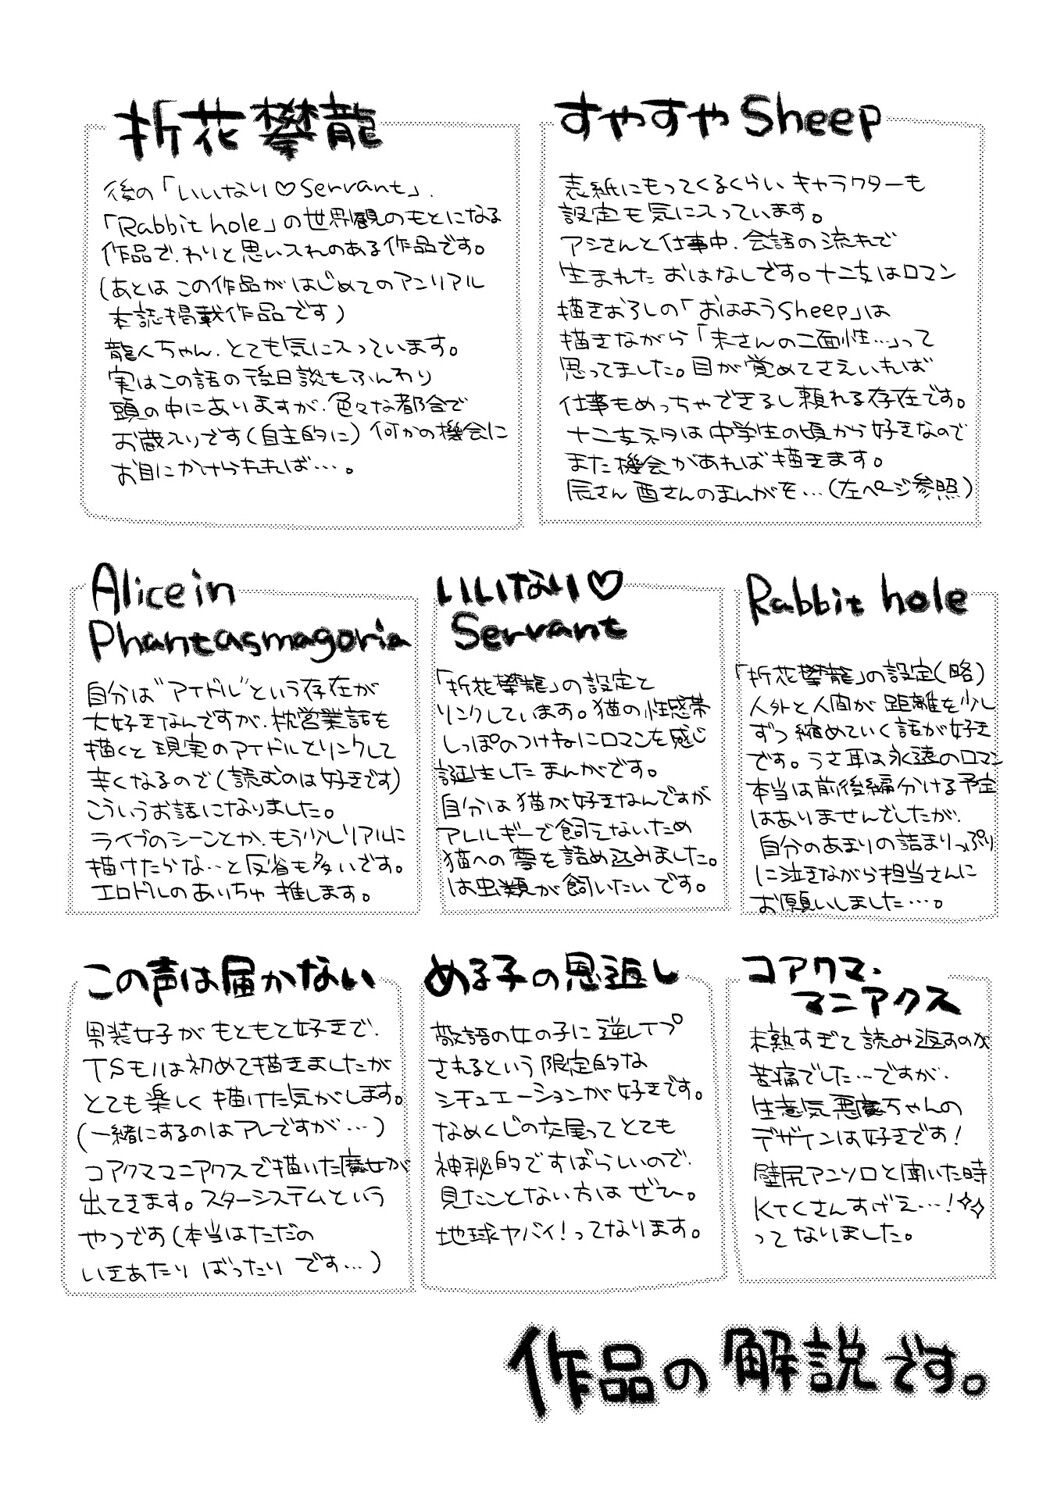 折花攀龍
後の「いいなり♡Servant」、
「Rabbit hole」の世界観のもとになる
作品で、わりと思い入れのある作品です。
(あとはこの作品がはじめてのアンリアル
本誌掲載作品です)
龍人ちゃん、とても気に入っています。
実はこの話の後日談もふんわり
頭の中にありますが、色々な都合で
お蔵入りです(自主的に)何かの機会に
お目にかけられれば…。
すやすやSheep
表紙にもってくるくらいキャラクターも
設定も気に入っています。
アシさんと仕事中、会話の流れで
生まれたおはなしです。十二支はロマン
描きおろしの「おはようSheep」は
描きながら「未さんの二面性…」って
思ってました。目が覚めてさえいれば
仕事もめっちゃできるし頼れる存在です。
十二支ネタは中学生の頃から好きなので
また機会があれば描きます。
辰さん酉さんのまんがを…(左ページ参照)
Alice in
Phantasmagoria
自分は"アイドル"という存在が
大好きなんですが、枕営業話を
描くと現実のアイドルとリンクして
辛くなるので(読むのは好きです)
こういうお話になりました。
ライブのシーンとか、もう少しリアルに
描けたらな…と反省も多いです。
エロドルのあいちゃ推します。
いいなり♡
Servant
「折花攀龍」の設定と
リンクしています。猫の性感帯
しっぽのつけねにロマンを感じ
誕生したまんがです。
自分は猫が好きなんですが
アレルギーで飼えないため
猫への夢を詰め込みました。
は虫類が飼いたいです。
Rabbit hole
「折花攀龍」の設定(略)
人外と人間が距離を少し
ずつ縮めていく話が好き
です。うさ耳は永遠のロマン
本当は前後編分ける予定
はありませんでしたが、
自分のあまりの詰まりっぷり
に泣きながら担当さんに
お願いしました…。
この声は届かない
男装女子がもともと好きで、
TSモノは初めて描きましたが
とても楽しく描けた気がします。
(一緒にするのはアレですが…)
コアクママニアクスで描いた魔女が
出てきます。スターシステムという
やつです(本当はただの
いきあたりばったりです…)
める子の恩返し
敬語の女の子に逆レイプ
されるという限定的な
シチュエーションが好きです。
なめくじの交尾ってとても
神秘的ですばらしいので、
見たことない方はぜひ。
地球ヤバイ!ってなります。
コアクマ・
マニアクス
未熟すぎて読み返すのが
苦痛でした…ですが、
生意気悪魔ちゃんの
デザインは好きです!
壁尻アンソロと聞いた時
KTCさんすげえ…!✧✧
ってなりました。
作品の解説です。